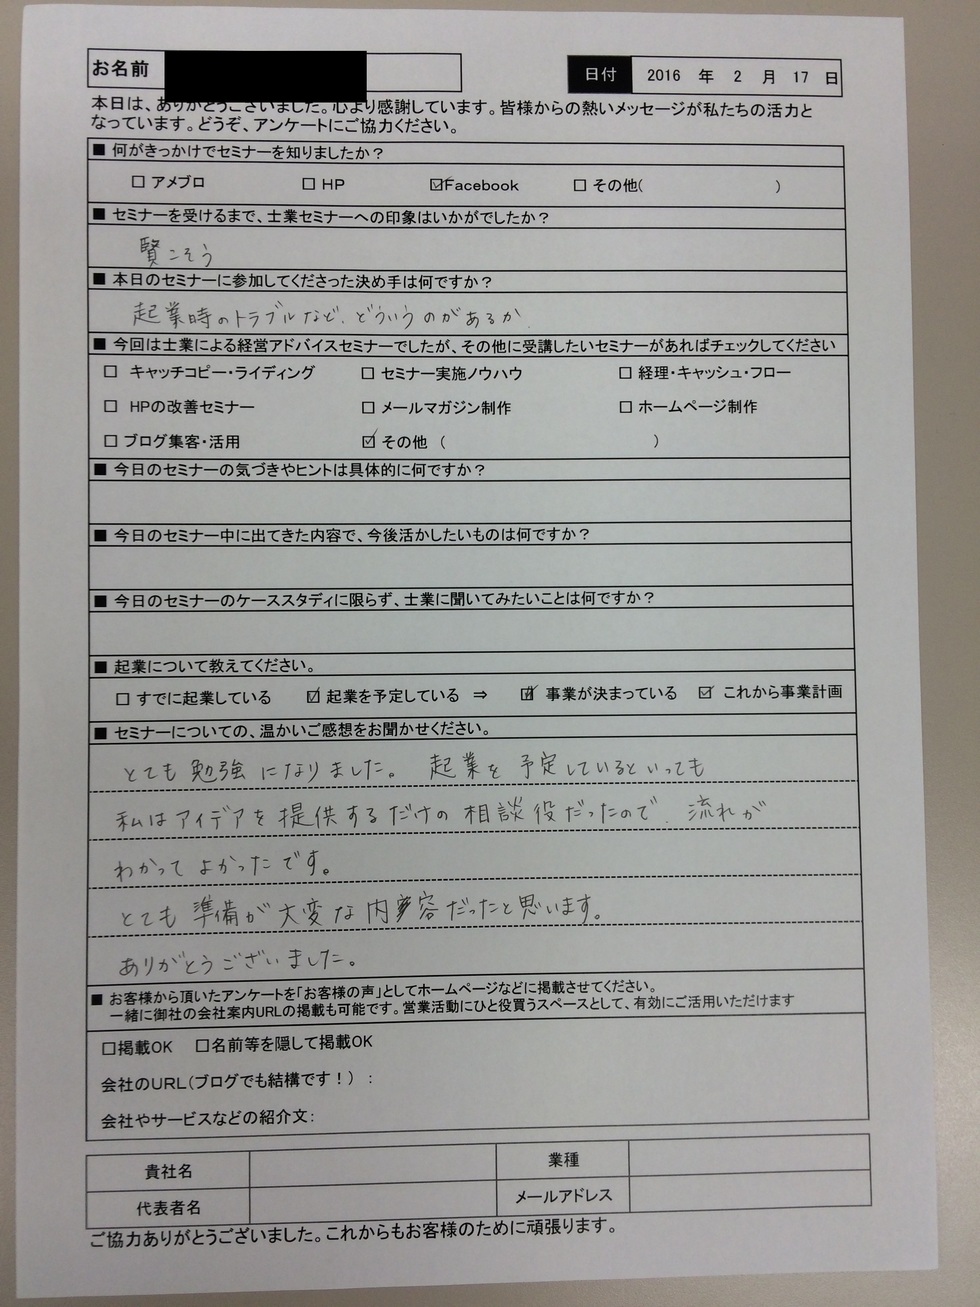 お名前
日付 2016 年 2 月 17 日
本日は、ありがとうございました。心より感謝しています。皆様からの熱いメッセージが私たちの活力と
なっています。どうぞ、アンケートにご協力ください。
■ 何がきっかけでセミナーを知りましたか？
□ アメブロ □ HP ☑Facebook □ その他( )
■ セミナーを受けるまで、士業セミナーへの印象はいかがでしたか？
賢こそう
■ 本日のセミナーに参加してくださった決め手は何ですか？
起業時のトラブルなど、どういうのがあるか
■ 今回は士業による経営アドバイスセミナーでしたが、その他に受講したいセミナーがあればチェックしてください
□ キャッチコピー・ライディング □ セミナー実施ノウハウ □ 経理・キャッシュ・フロー
□ HPの改善セミナー □ メールマガジン制作 □ ホームページ制作
□ ブログ集客・活用 ☑ その他 ( )
■ 今日のセミナーの気づきやヒントは具体的に何ですか？
■ 今日のセミナー中に出てきた内容で、今後活かしたいものは何ですか？
■ 今日のセミナーのケーススタディに限らず、士業に聞いてみたいことは何ですか？
■ 起業について教えてください。
□ すでに起業している ☑ 起業を予定している ⇒ ☑ 事業が決まっている ☑ これから事業計画
■ セミナーについての、温かいご感想をお聞かせください。
とても勉強になりました。 起業を予定しているといっても
私はアイデアを提供するだけの相談役だったので、流れが
わかってよかったです。
とても準備が大変な内容だったと思います。
ありがとうございました。
■ お客様から頂いたアンケートを「お客様の声」としてホームページなどに掲載させてください。
一緒に御社の会社案内URLの掲載も可能です。営業活動にひと役買うスペースとして、有効にご活用いただけます
□掲載OK □名前等を隠して掲載OK
会社のURL(ブログでも結構です！) ：
会社やサービスなどの紹介文：
貴社名 業種
代表者名 メールアドレス
ご協力ありがとうございました。これからもお客様のために頑張ります。